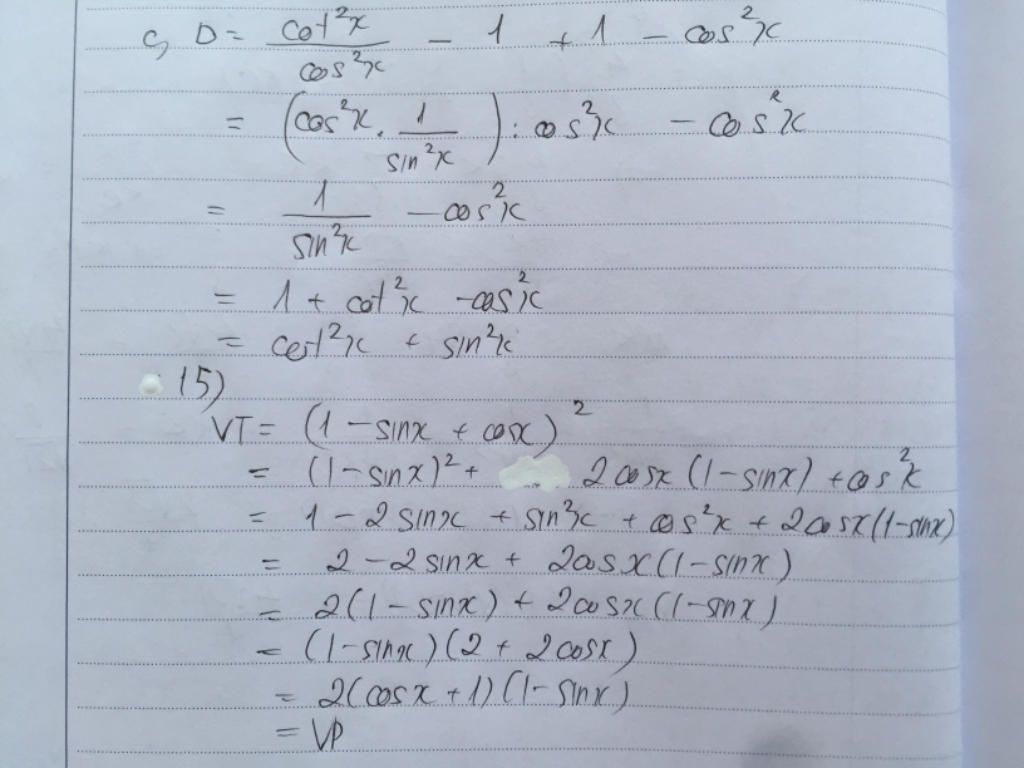 c, D = cot²x / cos²x - 1 + 1 - cos²x
= (cos²x . 1 / sin²x) : cos²x - cos²x
= 1 / sin²x - cos²x
= 1 + cot²x - cos²x
= cot²x + sin²x
15)
VT = (1 - sinx + cosx)²
= (1 - sinx)² + 2cosx (1 - sinx) + cos²x
= 1 - 2sinx + sin²x + cos²x + 2cosx(1 - sinx)
= 2 - 2sinx + 2cosx(1 - sinx)
= 2(1 - sinx) + 2cosx(1 - sinx)
= (1 - sinx)(2 + 2cosx)
= 2(cosx + 1)(1 - sinx)
= VP